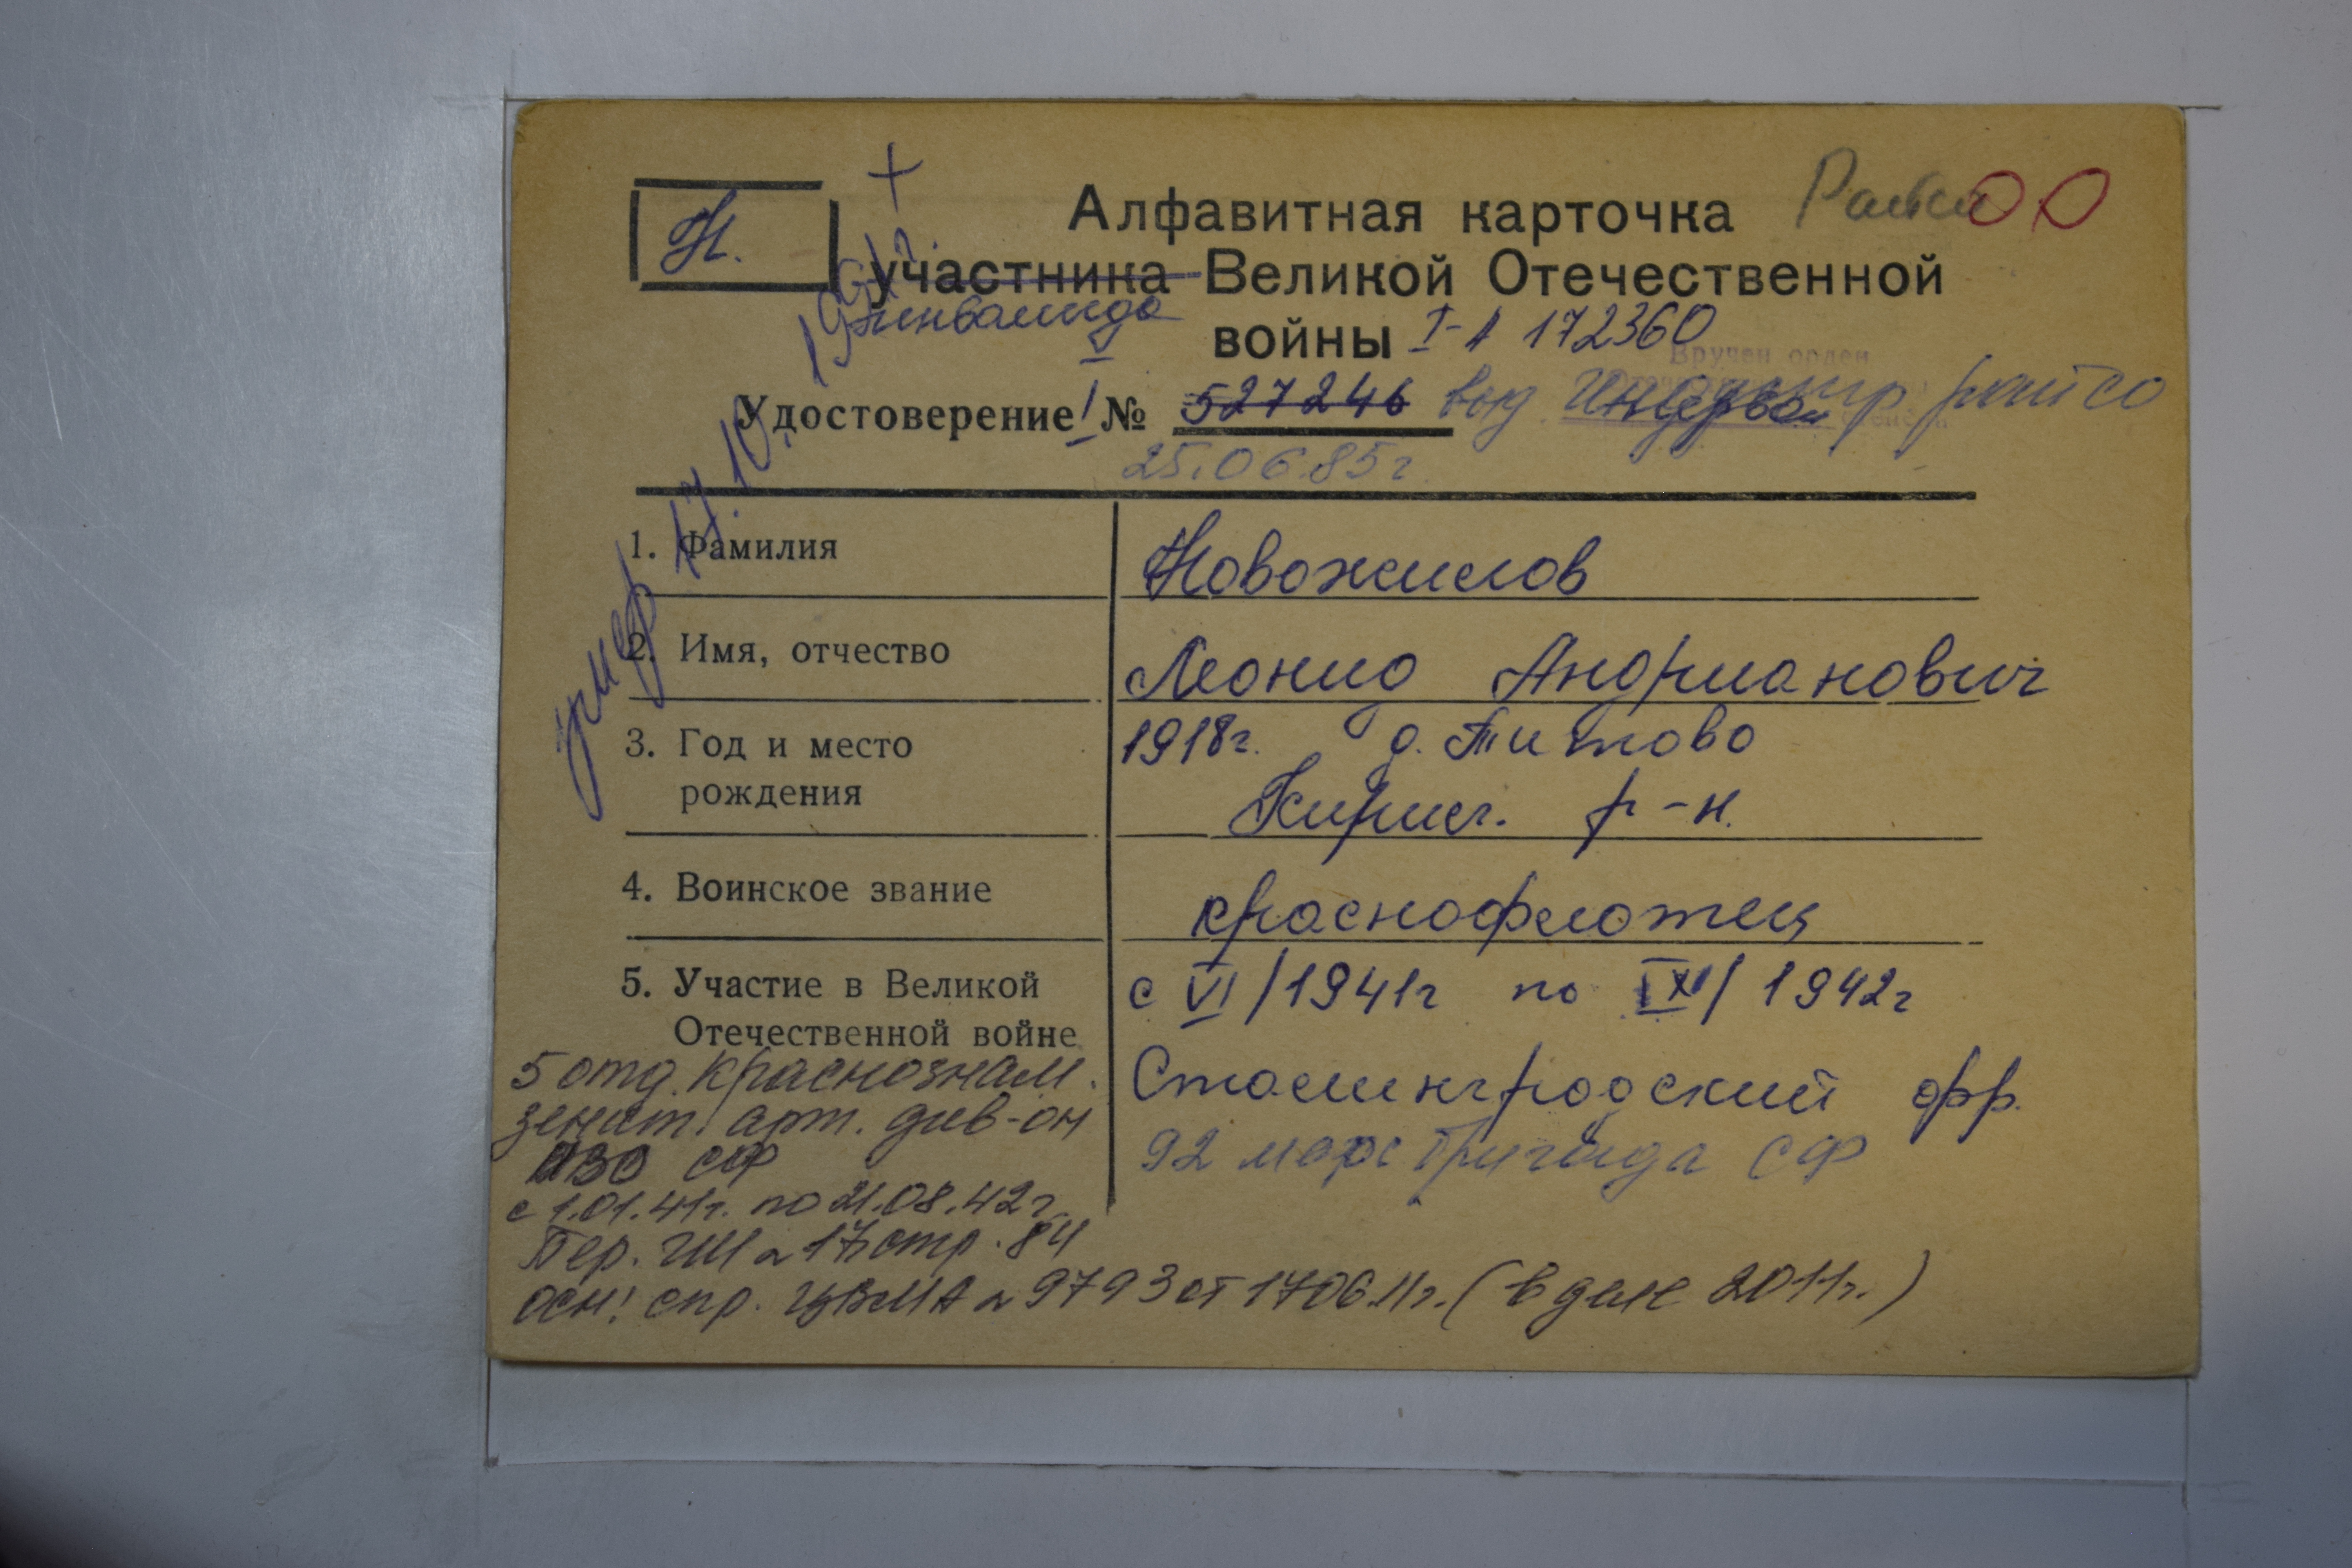 Н.
+
Алфавитная карточка
участника Великой Отечественной
инвалида
войны I-А 172360
Вручен орден
Удостоверение № 527246 райсо
25.06.85г
умер 17.10.
1. Фамилия Новожилов
2. Имя, отчество Леонид Андрианович
3. Год и место 1918г. д. Титово
рождения Кирилл. р-н.
4. Воинское звание краснофлотец
5. Участие в Великой с VI/1941г по IX/1942г
Отечественной войне
Сталинградский фр.
92 морс бригада СФ
5 отд. краснознам.
зенит. арт. див-он
ПВО СФ
с 1.01.41г. по 21.08.42г
Пер. ГШ № 17 стр. 84
осн: спр. ЦВМА № 9793 от 17.06.11г. (в деле 2011г.)